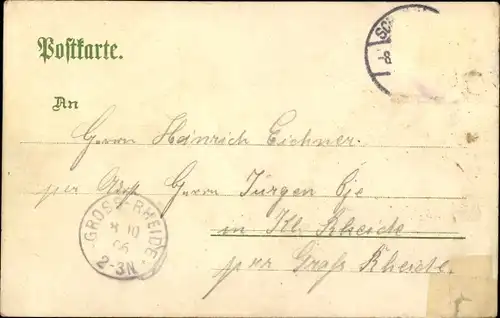 Postkarte.
SC
-8
An
Herrn Heinrich Eichner.
per Adr. Herrn Jürgen
in Kl. Rheide
per Groß Rheide.
GROSS-RHEIDE
8 10
06
2-3N.